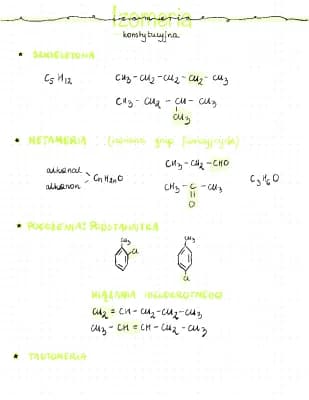 Izomeria
konstytucyjna
• SZKIELETOWA
C5H12 CH3-CH2-CH2-CH2-CH3
CH3-CH2-CH-CH3
CH3
• METAMERIA: (izomeria grup funkcyjnych)
CH3-CH2-CHO
alkanal
alkanon > CnH2nO CH3-C-CH3 C3H6O
O
• POŁOŻENIA: PODSTAWNIKA
CH3 CH3
Cl
Cl
WIĄZANIA WIELOKROTNEGO
CH2=CH-CH2-CH2-CH3
CH3-CH=CH-CH2-CH3
• TAUTOMERIA